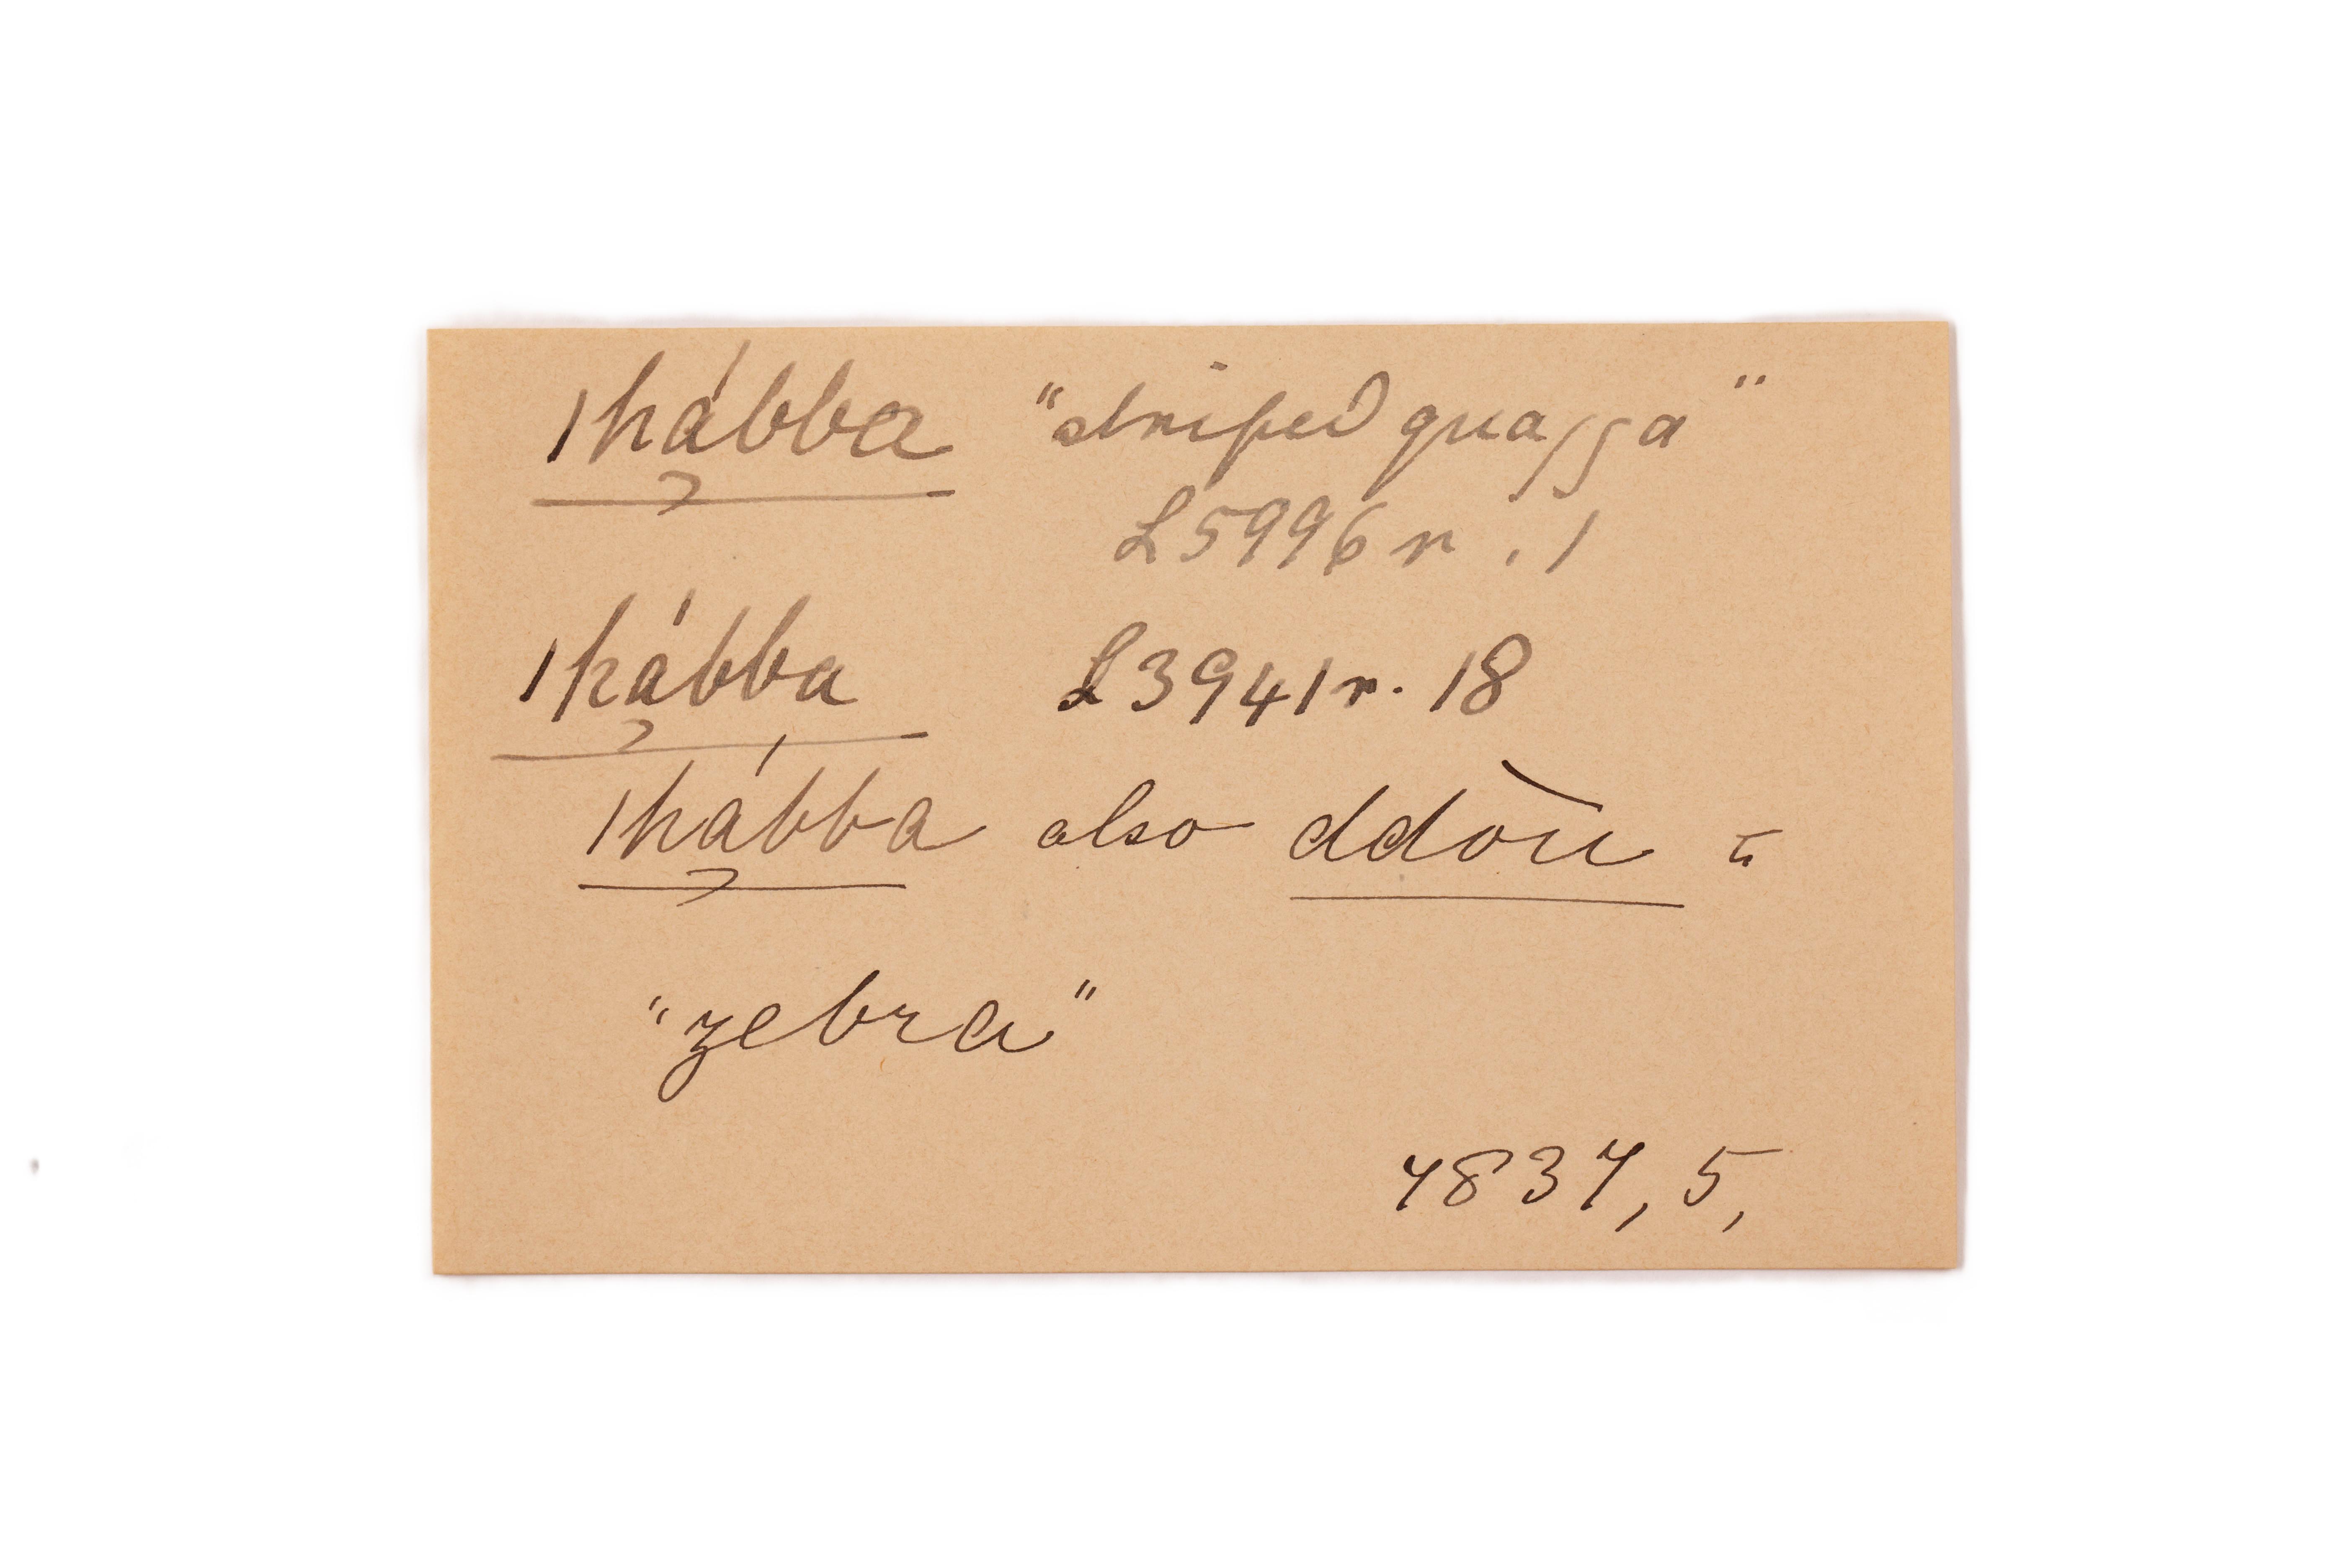 |hábba "striped quagga"
L5996 r. 1
|hábba L3941 r. 18
|hábba also ddòu =
"zebra"
4837, 5,